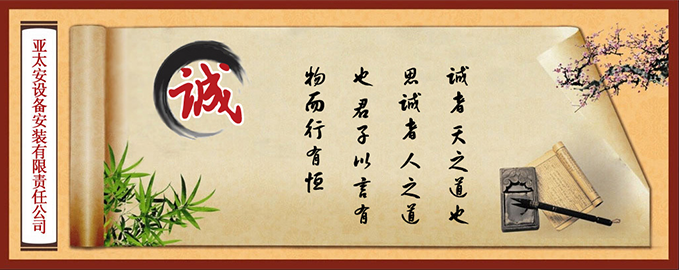 诚者天之道也
思诚者人之道
也君子以言有
物而行有恒
诚
亚太安设备安装有限责任公司